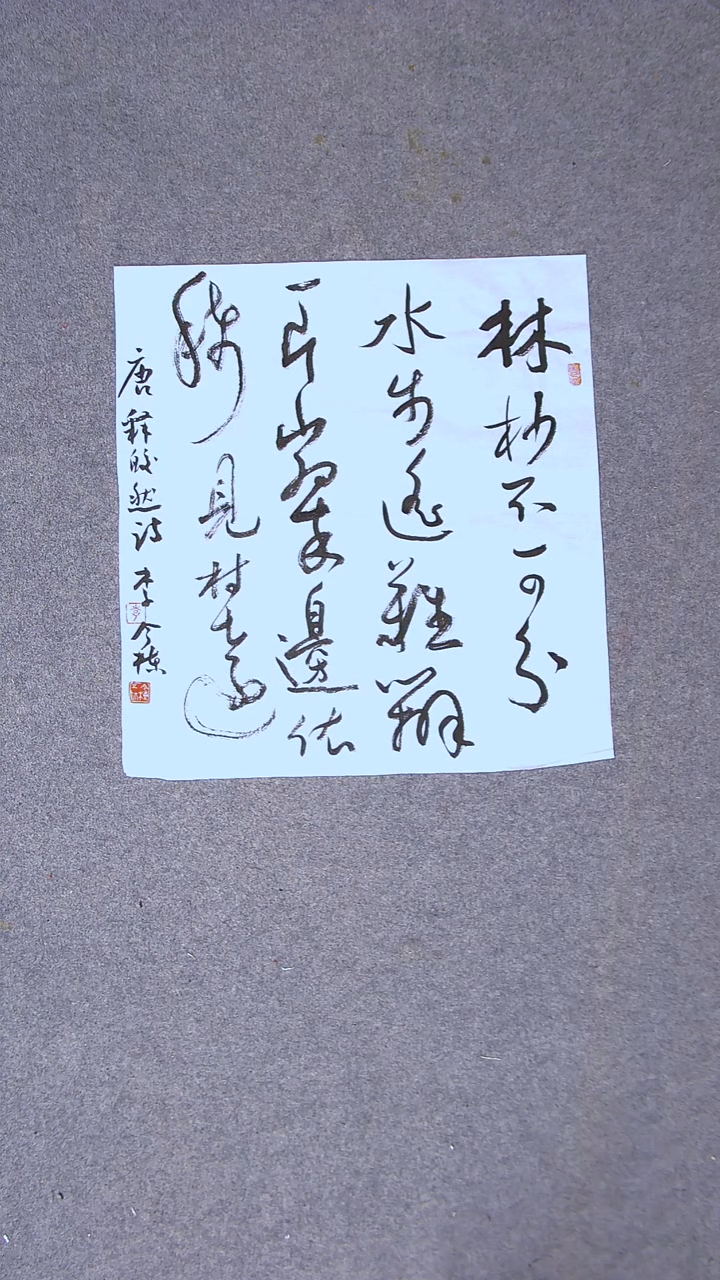 林杪不可分
水步遙難辨
一片山翠邊依
稀見村遠
唐釋皎然詩 李今棟